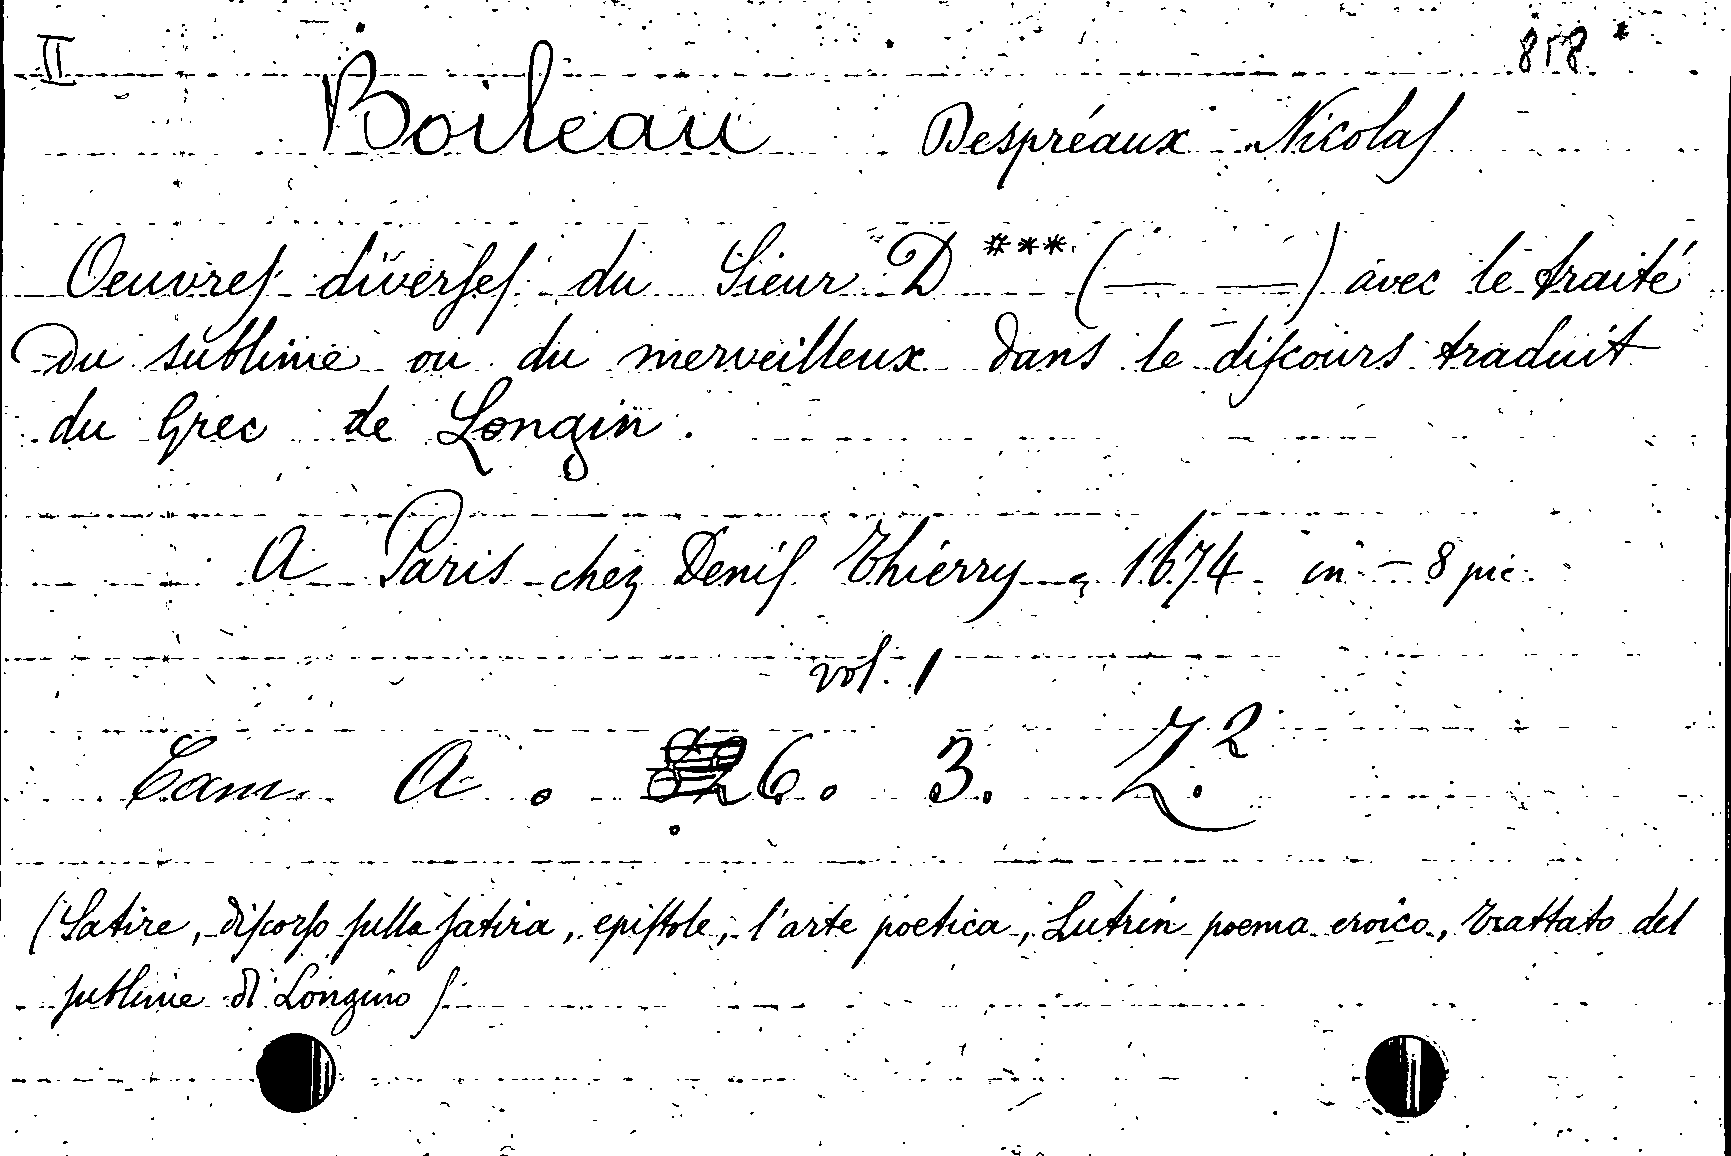 II 858
Boileau Despréaux Nicolas
Oeuvres diverses du Sieur D*** (— —) avec le traité
du sublime ou du merveilleux dans le discours traduit
du Grec de Longin.
A Paris chez Denis Thierry, 1674 in-8 pic.
vol. 1
Cam. A. 6. 3. Z.²
(Satire, discorso sulla satira, epistole, l'arte poetica, Lutrin poema eroico, trattato del
sublime di Longino)